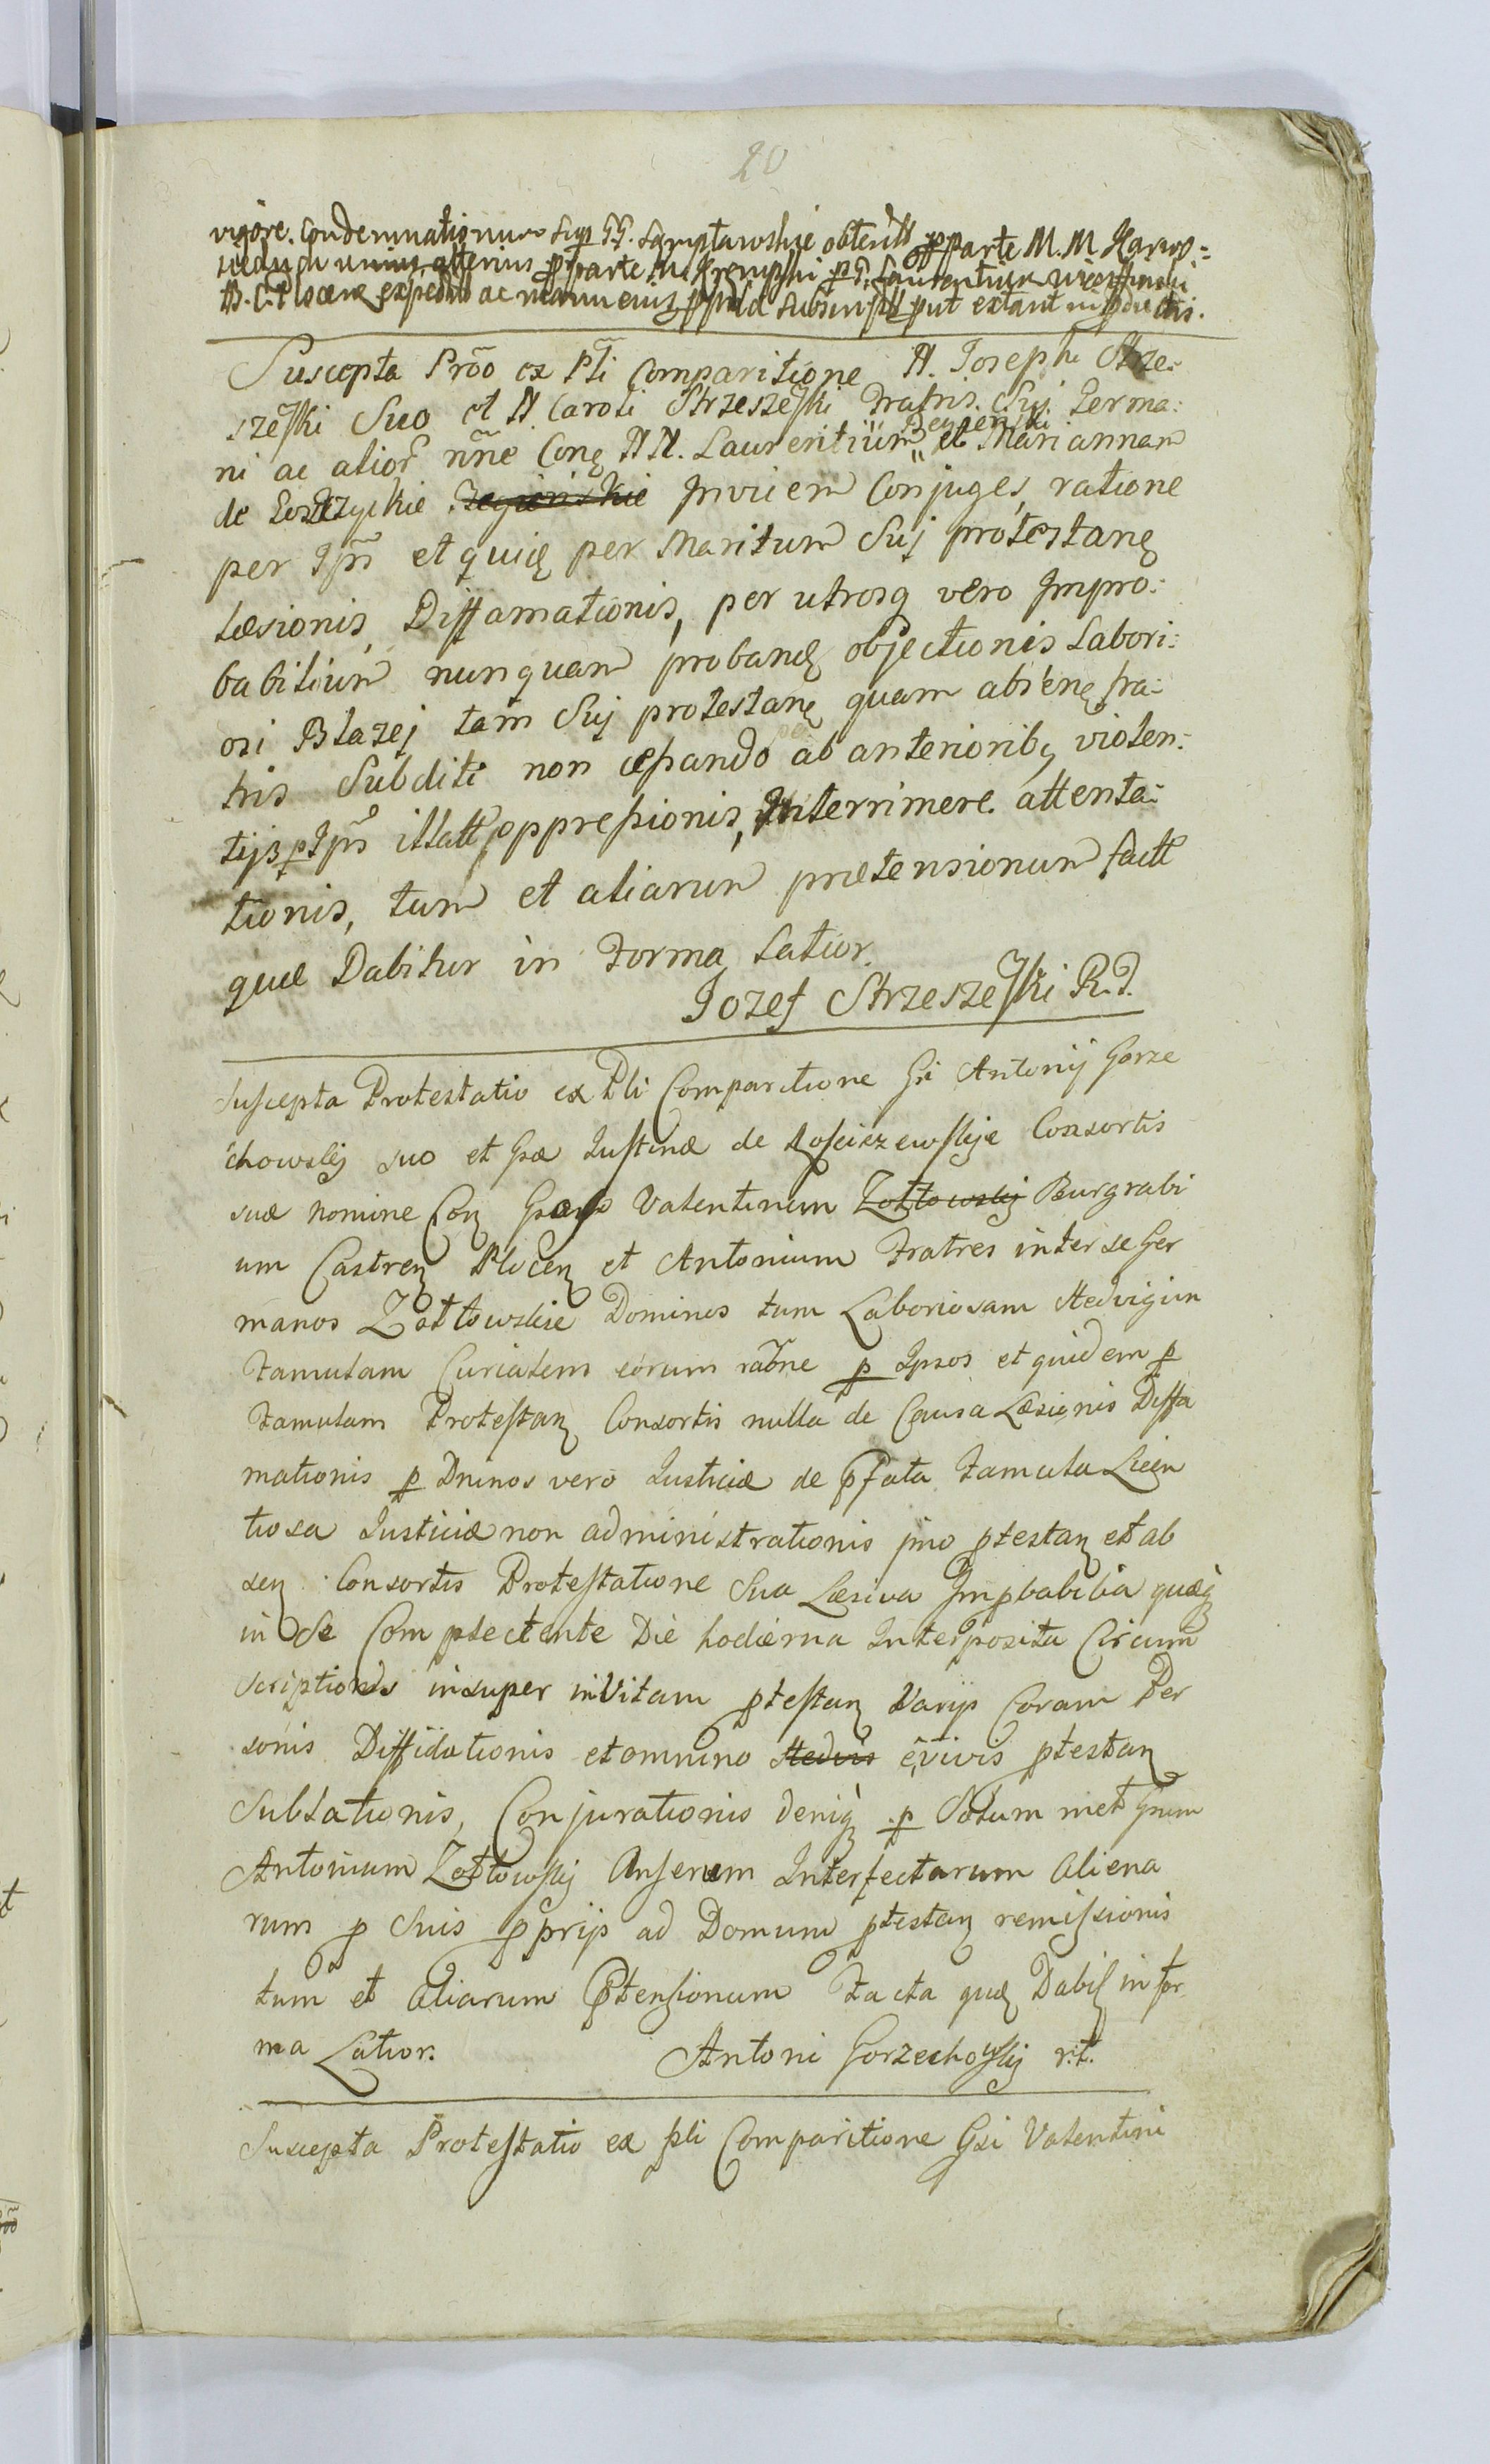 20
vigore Condemnationum Sup GG. obtent p parte M. M.
unius alterius p parte M. p G. Laurentium
expedit ac manu ejus subscript put extant in
Suscepta Pröo ex Pli Comparitione N. Josephi Strze:
szeski Suo et N. Caroli Strzeszeski Fratris Suj Germa:
ni ac alior nñe Conq NN. Laurentium et Mariannam
de Invicem Conjuges, ratione
per Ipm et quidq per Maritum Suj protestanq
Læsionis, Diffamationis, per utrosq vero Impro:
babilium nunquam proband objectionis Labori:
osi Błazej tam Suj protestanq quam absenq fra:
tris Subditi non cessando ab anterioribq violen:
tijs p Ipm illatt oppressionis, Interrimere attenta:
tionis, tum et aliarum prætensionum fact
quæ Dabitur in Forma Latior.
Jozef Strzeszeski R. P.
Suscepta Protestatio ex Pli Comparitione Gsi Antonij Gorze
chowskj suo et Gsæ Justinæ de Kosciszewskje Consortis
suæ nomine Conq Gsum Valentinum Zołtowskj Burgrabi
um Castrenq Plocenq et Antonium Fratres inter se Ger
manos Zołtowskie Dominos tum Laboriosam Hedvigim
Famulam Curialem eorum raone p Ipsos et quidem p
Famulam Protestanq Consortis nulla de Causa Læsionis Diffa
mationis p Dminos vero Justiciæ de pfata Famula Licen
tiosa Justiciæ non administrationis imo ptestanq et ab
senq Consortis Protestatione Sua Læsiva Impbabilia quæq
in Se Complectente Die hodierna Interposita Circum
scriptionis insuper in Vitam ptestanq Varijs Coram Per
sonis Diffidationis et omnino e vivis ptestanq
Sublationis, Conjurationis deniq p Solum met Gsum
Antonium Zołtowskj Anserum Interfectarum aliena
rum p Suis pprijs ad Domum ptestanq remissionis
tum et aliarum Ptensionum Facta quæ Dabit in for
ma Latior. Antoni Gorzechowskj r.t.
Suscepta Protestatio ex pli Comparitione Gsi Valentini